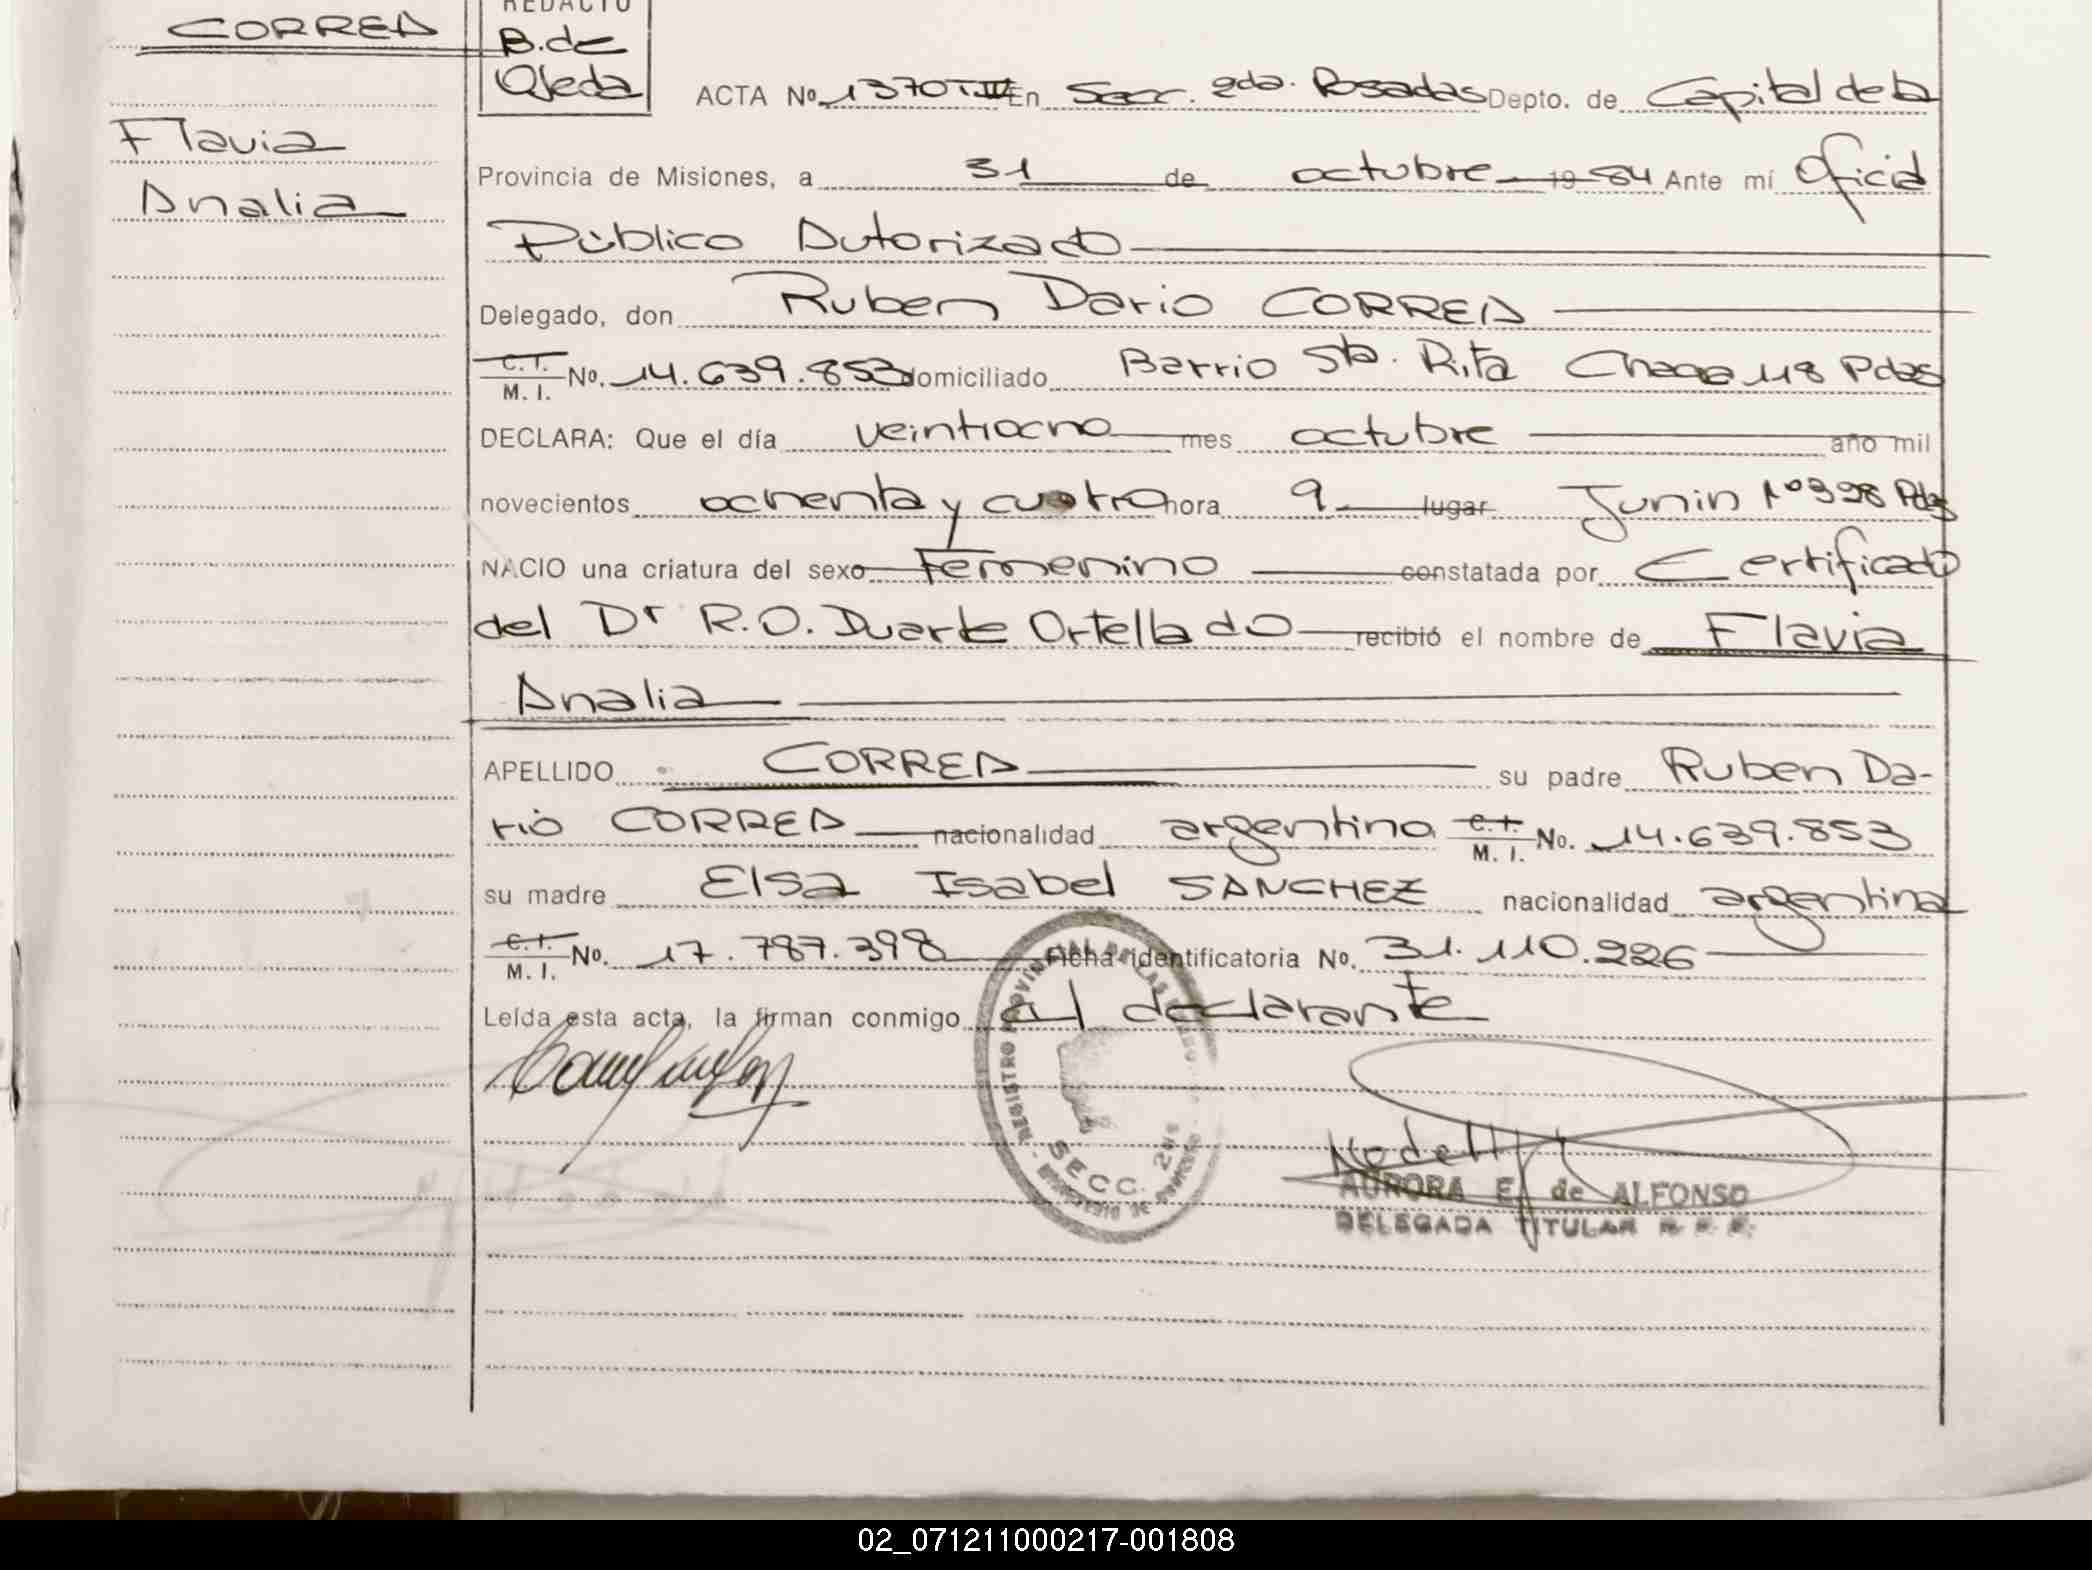 CORREA
REDACTO
B. de
Ojeda
Flavia
Analia
ACTA Nº 1370 T.IV En Secc. 2da. Posadas Depto. de Capital de la
Provincia de Misiones, a 31 de octubre 1984 Ante mí Oficial
Público Autorizado
Delegado, don Ruben Dario CORREA
C. I. M. I. No. 14.639.853 domiciliado Barrio Sta. Rita Chacra 118 Pdas
DECLARA: Que el día veintiocho mes octubre año mil
novecientos ochenta y cuatro hora 9 lugar Junin Nº 398 Pdas
NACIO una criatura del sexo Femenino constatada por Certificado
del Dr R.O. Duarte Ortellado recibió el nombre de Flavia
Analia
APELLIDO CORREA su padre Ruben Da-
rio CORREA nacionalidad argentino C. I. M. I. No. 14.639.853
su madre Elsa Isabel SANCHEZ nacionalidad argentina
C. I. M. I. No. 17.787.398 Ficha identificatoria No. 31.110.226
Leída esta acta, la firman conmigo el declarante
REGISTRO PROVINCIAL DE LAS PERSONAS
SECC. 2da
AURORA E. de ALFONSO
DELEGADA TITULAR
02_071211000217-001808